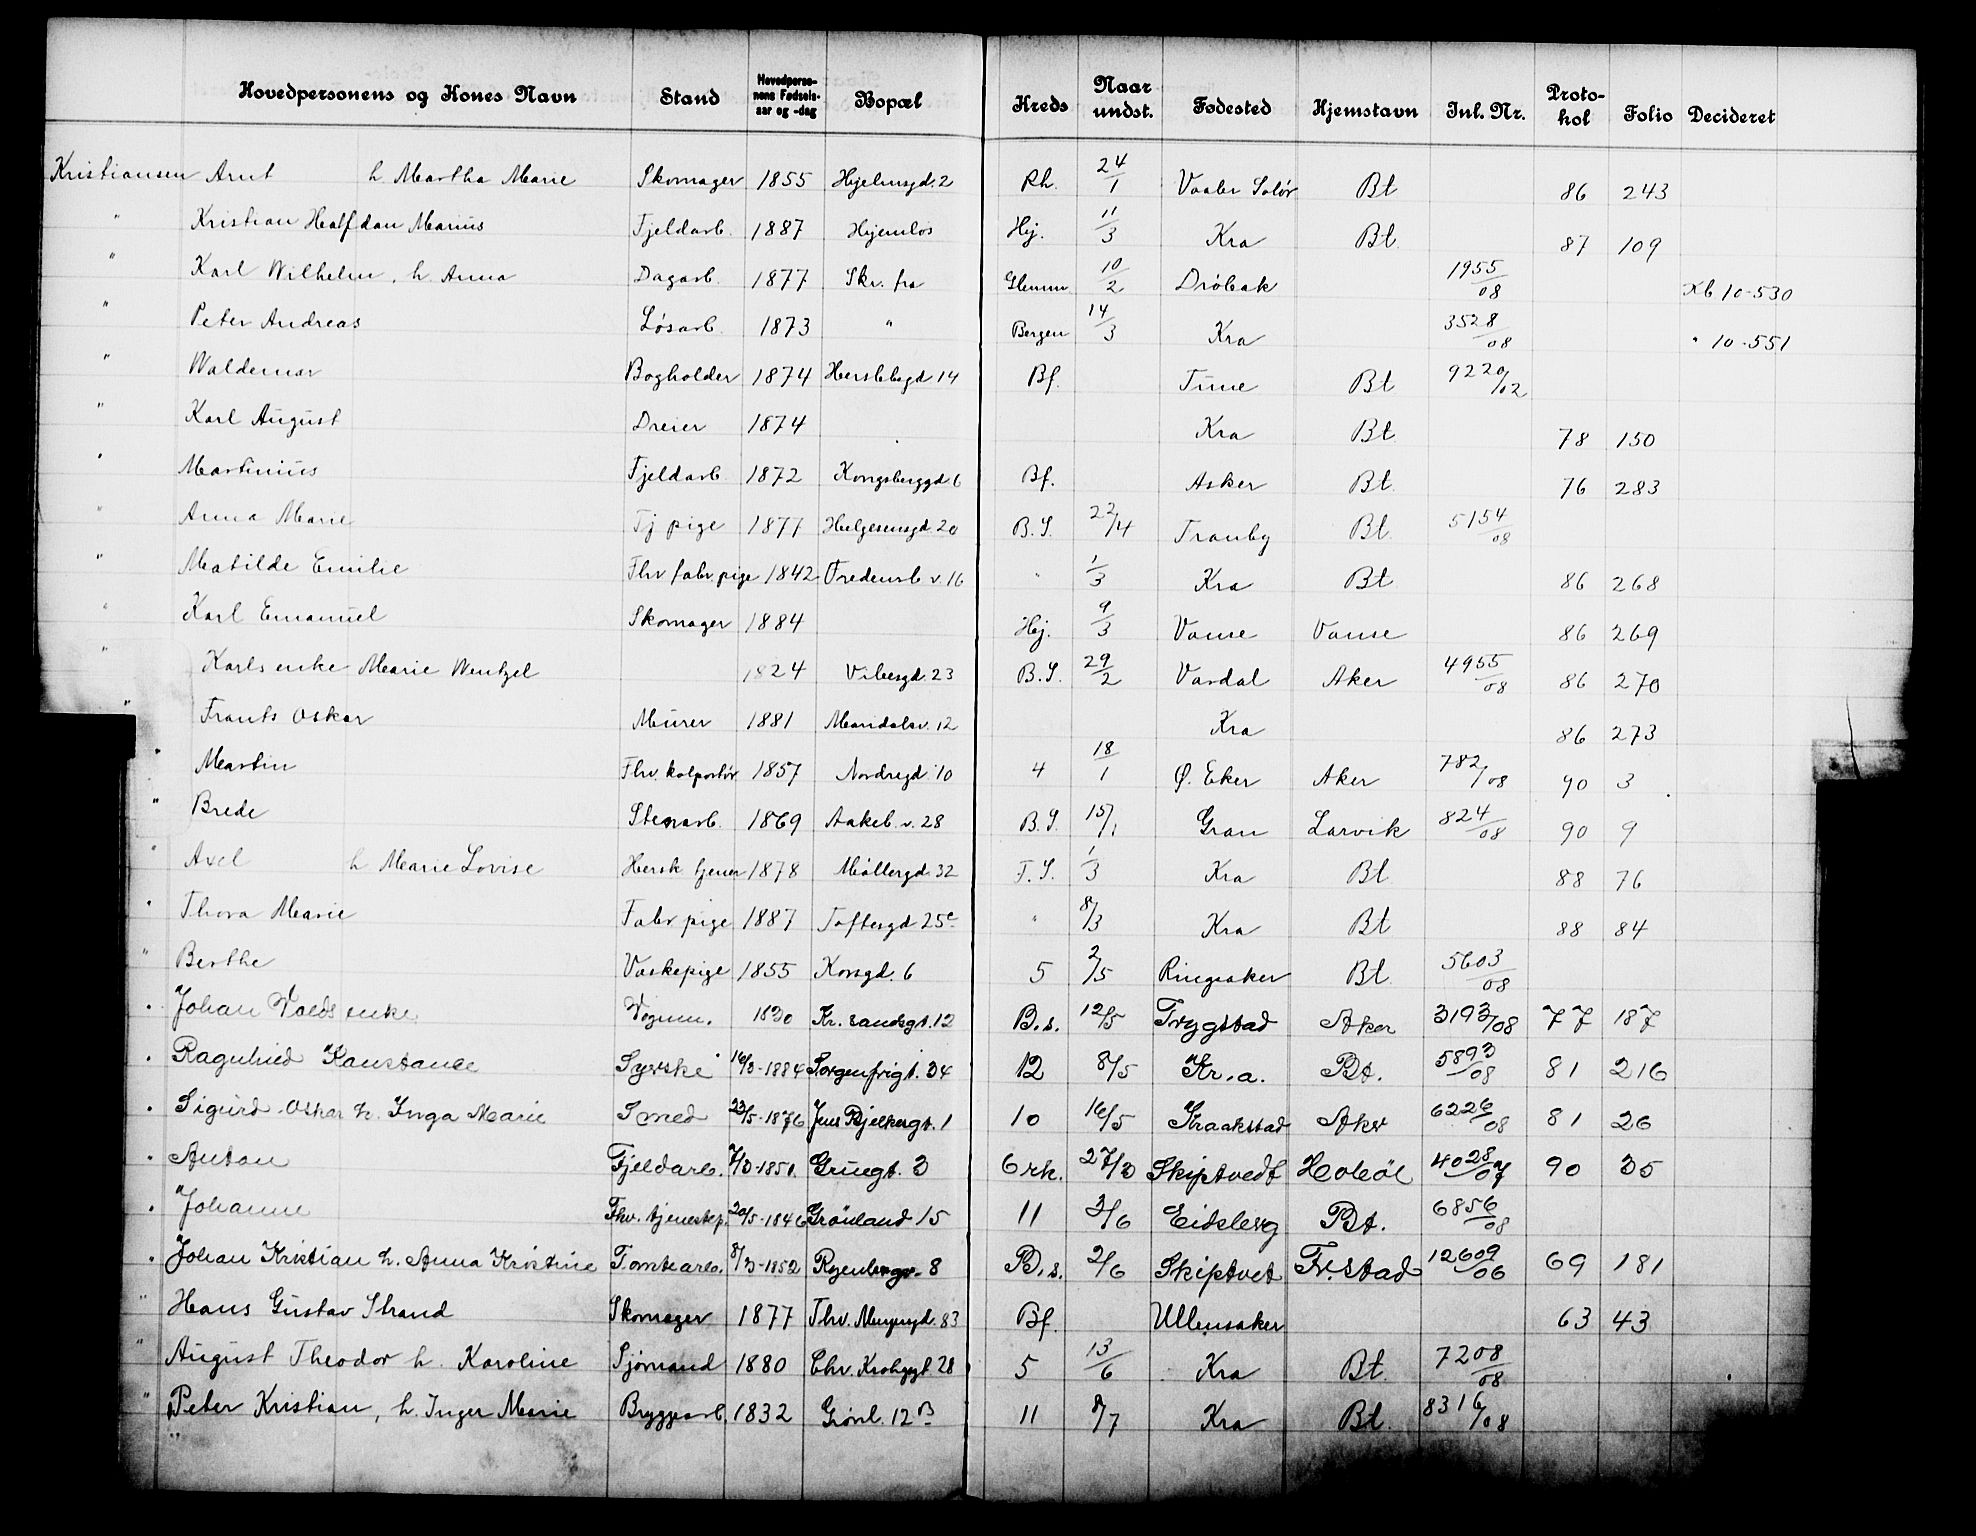 Hovedpersonens og Kones Navn Stand Hovedperso-nens Fødsels-aar og -dag Bopæl Kreds Naar undst. Fødested Hjemstavn Inl. Nr. Proto-kol Folio Decideret
Kristiansen Arnt h. Martha Marie Skomager 1855 Hjelmsgd. 2 Rh. 24/1 Vaaler Solør Bt 86 243
" Kristian Halfdan Marius Fjeldarb. 1887 Hjemløs Hj. 11/3 Kra Bt. 87 109
" Karl Wilhelm, h. Anna Dagarb. 1877 Skr. fra Glemm. 10/2 Drøbak 1955/08 Kb 10-530
" Peter Andreas Løsarb. 1873 " Bergen 14/3 Kra 3528/08 " 10-551
" Waldemar Bogholder 1874 Herslebsgd 14 Bf. Tune Bt 9220/02
" Karl August Dreier 1874 Kra Bt. 78 150
" Martinius Fjeldarb 1872 Kongsberggd 6 Bf. Asker Bt. 76 283
" Anna Marie Tj pige 1877 Helgesensgd 20 B.S. 22/4 Tranby Bt. 5154/08
" Matilde Emilie Fhv fabr. pige 1842 Fredensb v. 16 " 1/3 Kra Bt 86 268
" Karl Emanuel Skomager 1884 Hj. 9/3 Vanse Vanse 86 269
" Karls enke Marie Wentzel 1824 Vibesgd. 23 B.S. 29/2 Vardal Aker 4955/08 86 270
" Frants Oskar Murer 1881 Maridalsv. 12 Kra 86 273
" Martin Fhv. kolportør 1857 Nordregd 10 4 18/1 Ø. Eker Aker 782/08 90 3
" Brede Stenarb. 1869 Aakeb. v. 28 B.S. 15/1 Gran Larvik 824/08 90 9
" Axel h Marie Lovise Hersk tjener 1878 Møllergd. 32 F.S. 1/3 Kra Bt 88 76
" Thora Marie Fabr. pige 1887 Toftesgd 25c " 8/3 Kra Bt 88 84
" Berthe Vaskepige 1855 Korsgd. 6 5 2/5 Ringsaker Bt. 5603/08
" Johan Volds enke Vognm. 1830 Kr. sandsgt. 12 B.s. 12/5 Trygstad Aker 3193/08 77 187
" Ragnhild Konstance Syerske 16/3-1884 Sorgenfrigt. 34 12 8/5 Kr.a. Bt. 5893/08 81 216
" Sigurd Oskar h. Inga Marie Smed 23/5-1876 Jens Bjelkesgt. 1 10 16/5 Kraakstad Aker 6226/08 81 26
" Anton Fjeldarb. 7/3-1851. Gruegt. 3 6rk. 27/3 Skiptvedt Hobøl 4028/07 90 35
" Johanne Fhv. tjenestep. 20/5-1846 Grønland 15 11 3/6 Eidsberg Bt. 6856/08
" Johan Kristian h. Anna Kristine Tomtearb. 8/3-1852 Rosenbergv. 8 B.s. 2/6 Skiptvet Fr.stad 12609/06 69 181
" Hans Gustav Strand Skomager 1877 Thv. Meyersgd. 83 Bf. Ullensaker 63 43
" August Theodor h. Karoline Sjømand 1880 Chr. Krohgsgt 28 5 13/6 Kra Bt. 7208/08
" Peter Kristian, h. Inger Marie Bryggearb. 1832 Grønl. 12 B 11 8/7 Kra Bt. 8316/08
"